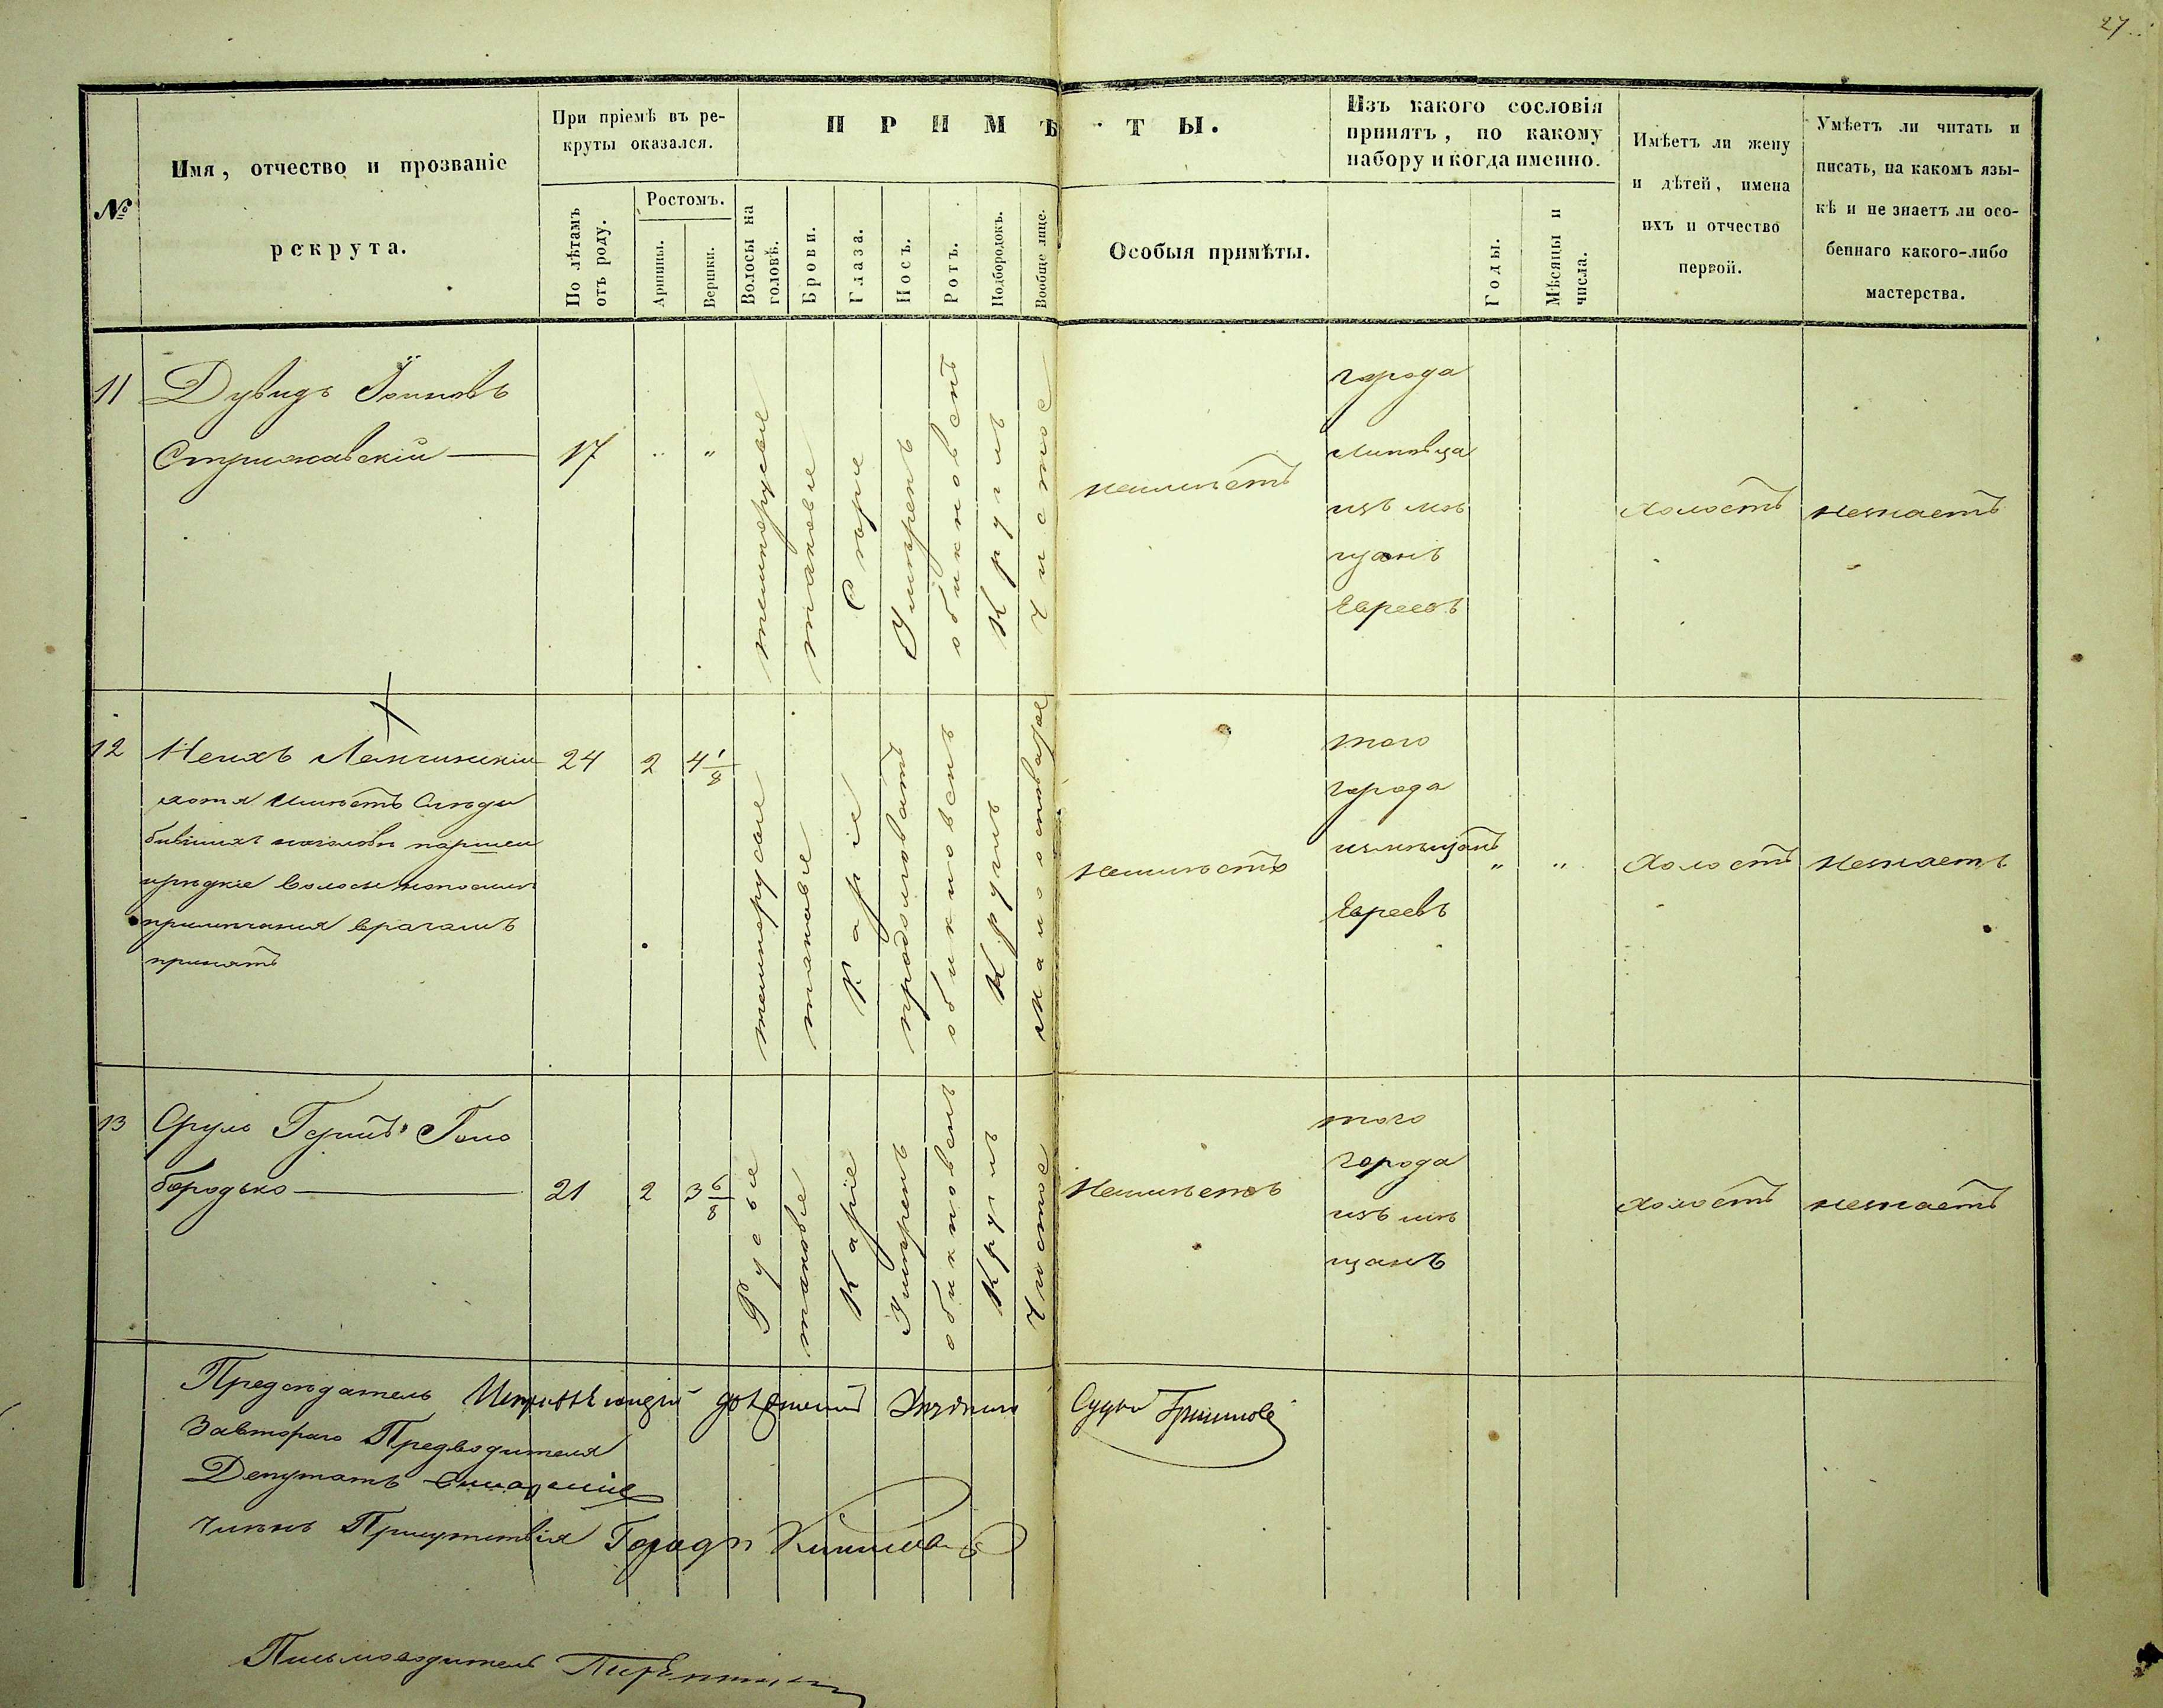 27
№
Имя, отчество и прозваніе
рекрута.
При пріемѣ въ ре-
круты оказался.
По лѣтамъ
отъ роду.
Ростомъ.
Аршины.
Вершки.
ПРИМѢТЫ.
Волосы на
головѣ.
Брови.
Глаза.
Носъ.
Ротъ.
Подбородокъ.
Вообще лице.
Особыя примѣты.
Изъ какого сословія
принятъ, по какому
набору и когда именно.
Годы.
Мѣсяцы и
числа.
Имѣетъ ли жену
и дѣтей, имена
ихъ и отчество
первой.
Умѣетъ ли читать и
писать, на какомъ язы-
кѣ и не знаетъ ли осо-
беннаго какого-либо
мастерства.
11
Дувидъ
Стрижавскій
17
" "
темнорусые
таковые
Сѣрые
Умѣренъ
обикновенъ
Круглъ
Чистое
неимѣетъ
города
Липовца
изъ мѣ
щанъ
Евреевъ
холостъ
незнаетъ
12
хотя имѣетъ Слѣды
бывшихъ наголовѣ паршей
ирѣдкіе волосы
примѣчанія врачамъ
принятъ
24
2
4 1/8
темнорусые
таковые
Каріе
продолговатъ
обикновенъ
Круглъ
неимѣетъ
того
города
измѣщанъ
Евреевъ
" "
холостъ
незнаетъ
13
Сруль
бородько
21
2
3 6/8
Русые
таковые
Каріе
Умѣренъ
обикновенъ
Круглъ
Чистое
Неимѣетъ
того
города
изъ мѣ
щанъ
холостъ
незнаетъ
Предсѣдатель
Завтораго Предводителя
Депутатъ
Членъ Присутствія
Судья
Письмоводитель